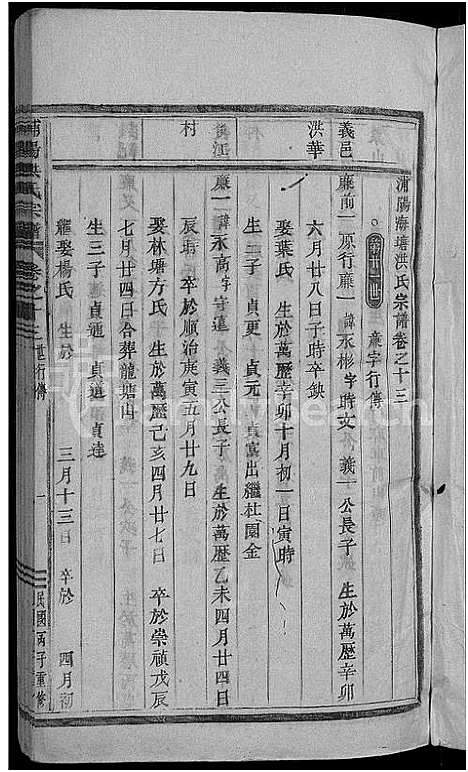 浦陽海塘洪氏宗譜卷之十三
廉字行傳
義邑
洪華
廉前一 原行廉一 諱永彬字時文 義一公長子 生於萬歷辛卯
六月廿八日子時卒缺
娶葉氏 生於萬歷辛卯十月初一日寅時
生二子 貞更 貞元 出繼社園金
村
廉一 諱永高字 義三公長子 生於萬歷乙未四月廿四日
辰時 卒於順治庚寅五月廿九日
娶林塘方氏 生於萬歷己亥四月廿七日 卒於崇禎戊辰
七月廿四日合葬龍塘山
生三子 貞通 貞道 貞達
繼娶楊氏 生於 三月十三日 卒於 四月初
浦陽洪氏宗譜 卷之十三 行傳 一 民國丙子重修